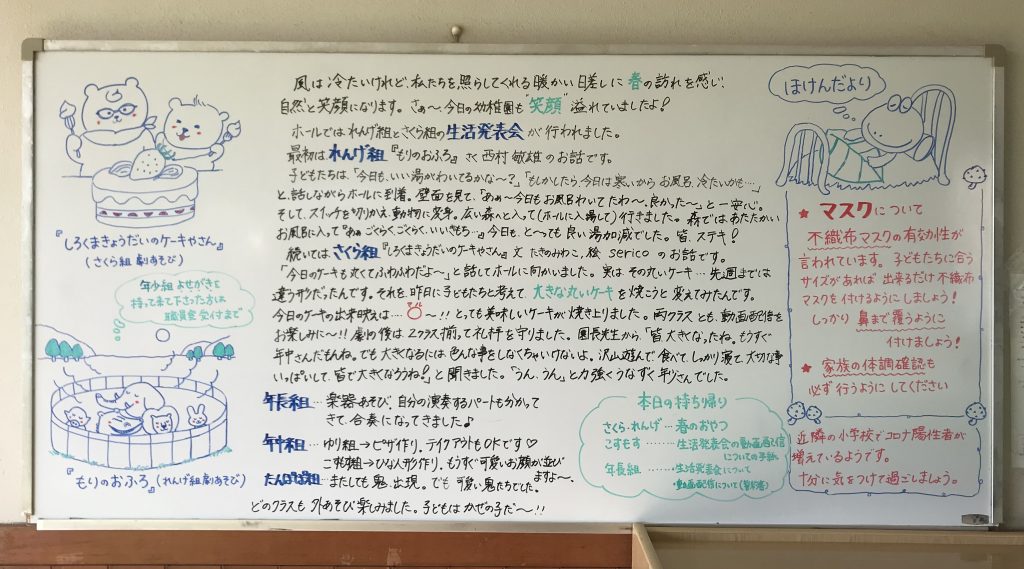 風は冷たいけれど、私たちを照らしてくれる暖かい日差しに春の訪れを感じ、
自然と笑顔になります。さぁ～今日の幼稚園も"笑顔"溢れていましたよ!
ホールではれんげ組とさくら組の生活発表会が行われました。
最初はれんげ組『もりのおふろ』さく西村敏雄のお話です。
子どもたちは、「今日も、いい湯がわいてるかな～?」「もしかしたら、今日は寒いからお風呂、冷たいかも…」
と、話しながらホールに到着。壁面を見て、「あぁ～今日もお風呂わいてたわ～、良かった～」と一安心。
そして、スイッチを切りかえ、動物に変身。広い森へと入って(ホールに入場して)行きました。森では、あたたかい
お風呂に入って『あぁ、ごくらくごくらく、いいきもち…』今日も、と～っても良い湯加減でした。皆、ステキ!
続いては、さくら組『しろくまきょうだいのケーキやさん』文 たきのみわこ、絵 serico のお話です。
「今日のケーキも丸くてふわふわだよ～」と話してホールに向かいました。実はその丸いケーキ…先週までは
違うサツだったんです。それを、昨日に子どもたちと考えて、大きな丸いケーキを焼こうと変えてみたんです。
今日のケーキの出来映えは…〜!! とっても美味しいケーキが焼き上りました。両クラスとも、動画配信を
お楽しみに～!! 劇の後は、2クラス揃って礼拝を守りました。園長先生から、「皆大きなったね。もうすぐ
年中さんだもんね。でも大きくなるには色んな事をしなくちゃいけないよ。沢山遊んで、食べて、しっかり寝て、大切な事
いっぱいして、皆で大きくなろうね!」と聞きました。「うん、うん」と力強くうなずく年少さんでした。
年長組…楽器あそび、自分の演奏するパートも分かって
きて、合奏になってきました♪
年中組…ゆり組→ピザ作り、テイクアウトもOKです♡
こすもす組→ひな人形作り、もうすぐ可愛いお顔が並び
ますよ～。
たんぽぽ組…またしても鬼出現。でも可愛い鬼たちでした。
どのクラスも外あそび楽しみました。子どもはかぜの子だ～!!
『しろくまきょうだいのケーキやさん』
(さくら組 劇あそび)
年少組よせがきを
持って来て下さった方は
職員室受付まで
『もりのおふろ』(れんげ組劇あそび)
本日の持ち帰り
さくら・れんげ…春のおやつ
こすもす………生活発表会の動画配信
についての手紙
年長組……生活発表会について
・動画配信について
ほけんだより
★ マスクについて
不織布マスクの有効性が
言われています。子どもたちに合う
サイズがあれば出来るだけ不織布
マスクを付けるようにしましょう!
しっかり鼻まで覆うように
付けましょう!
★ 家族の体調確認も
必ず行うようにしてください
近隣の小学校でコロナ陽性者が
増えているようです。
十分に気をつけて過ごしましょう。